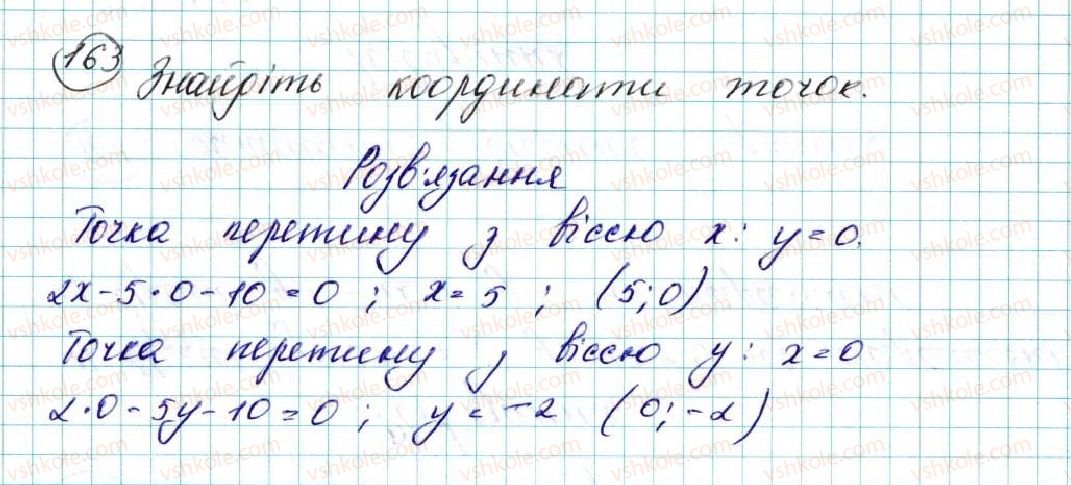 163 Знайдіть координати точок.
Розв'язання
Точка перетину з віссю x: y=0.
2x-5•0-10=0; x=5; (5;0)
Точка перетину з віссю y: x=0
2•0-5y-10=0; y=-2 (0;-2)